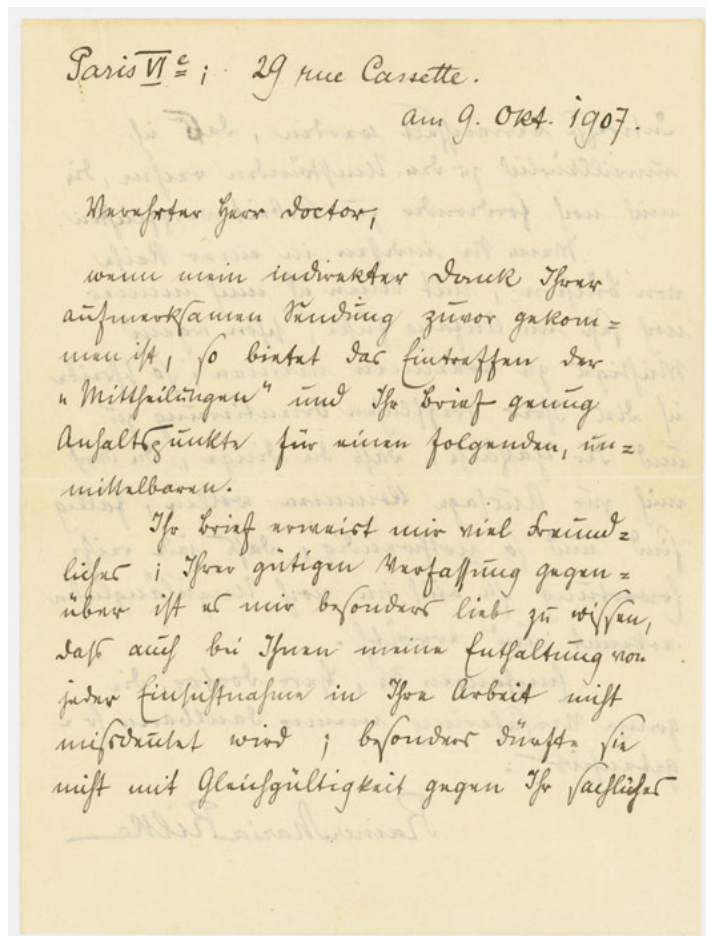 Paris VIe; 29 rue Cassette.
am 9. Okt. 1907.
Verehrter Herr Doctor,
wenn mein indirekter Dank Ihrer
aufmerksamen Sendung zuvor gekom=
men ist, so bietet das Eintreffen der
„Mittheilungen" und Ihr Brief genug
Anhaltspunkte für einen folgenden, un=
mittelbaren.
Ihr Brief erweist mir viel Freund=
liches; Ihrer gütigen Verfassung gegen=
über ist es mir besonders lieb zu wissen,
dass auch bei Ihnen meine Enthaltung von
jeder Einsichtnahme in Ihre Arbeit nicht
missdeutet wird; besonders dürfte sie
nicht mit Gleichgültigkeit gegen Ihr sachliches
Rainer Maria Rilke